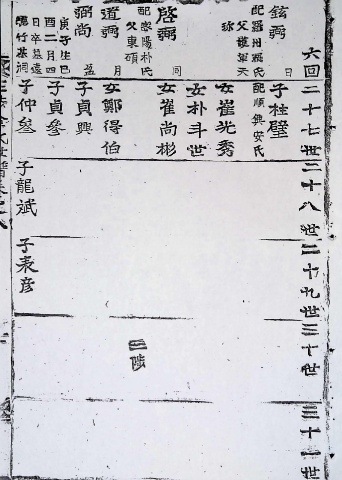 六回
二十七世
二十八世
二十九世
三十世
三十一世
鉉弼
日
配羅州
氏
父
天
子柱璧
配順興安氏
女崔光秀
女朴斗世
啓弼
同
女崔尚彬
配
陽朴氏
父東碩
道弼
月
女鄭得伯
弼尚
子貞興
庚子生巳
酉二月四
日卒墓遠
竹基洞
子貞參
子仲參
子龍斌
子表彦
三陟